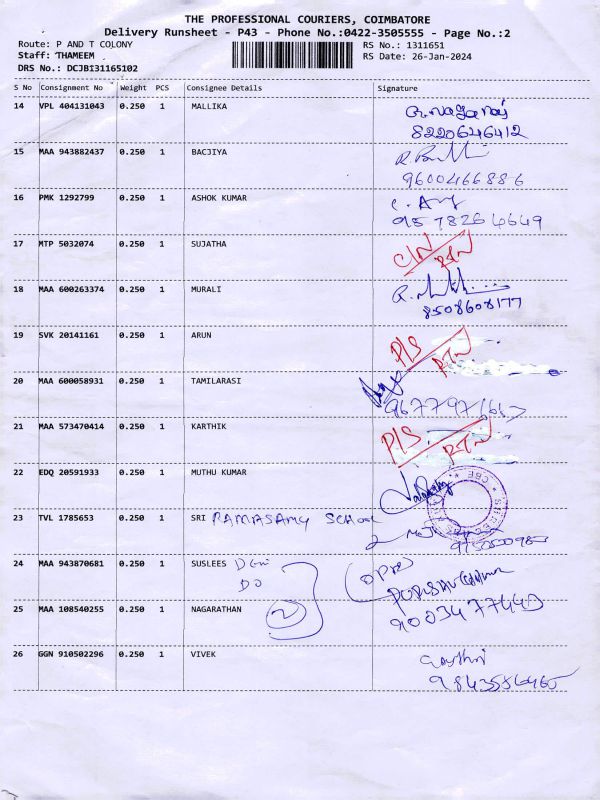 THE PROFESSIONAL COURIERS, COIMBATORE
Delivery Runsheet - P43 - Phone No.:0422-3505555 - Page No.:2
Route: P AND T COLONY RS No.: 1311651
Staff: THAMEEM RS Date: 26-Jan-2024
DRS No.: DCJB131165102
S No Consignment No Weight PCS Consignee Details Signature
14 VPL 404131043 0.250 1 MALLIKA
8220646412
15 MAA 943882437 0.250 1 BACJIYA
9600466886
16 PMK 1292799 0.250 1 ASHOK KUMAR
9578264649
17 MTP 5032074 0.250 1 SUJATHA
RTN
18 MAA 600263374 0.250 1 MURALI
8508608177
19 SVK 20141161 0.250 1 ARUN P/S
RTN
20 MAA 600058931 0.250 1 TAMILARASI
21 MAA 573470414 0.250 1 KARTHIK P/S
RTN
22 EDQ 20591933 0.250 1 MUTHU KUMAR
CBE
23 TVL 1785653 0.250 1 SRI RAMASAMY SCHOOL
24 MAA 943870681 0.250 1 SUSLEES
DO
25 MAA 108540255 0.250 1 NAGARATHAN
26 GGN 910502296 0.250 1 VIVEK